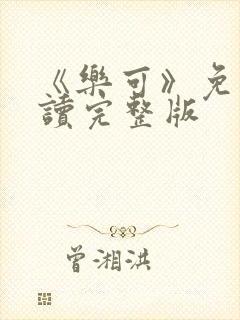 《樂可》免
讀完整版
曾湘洪